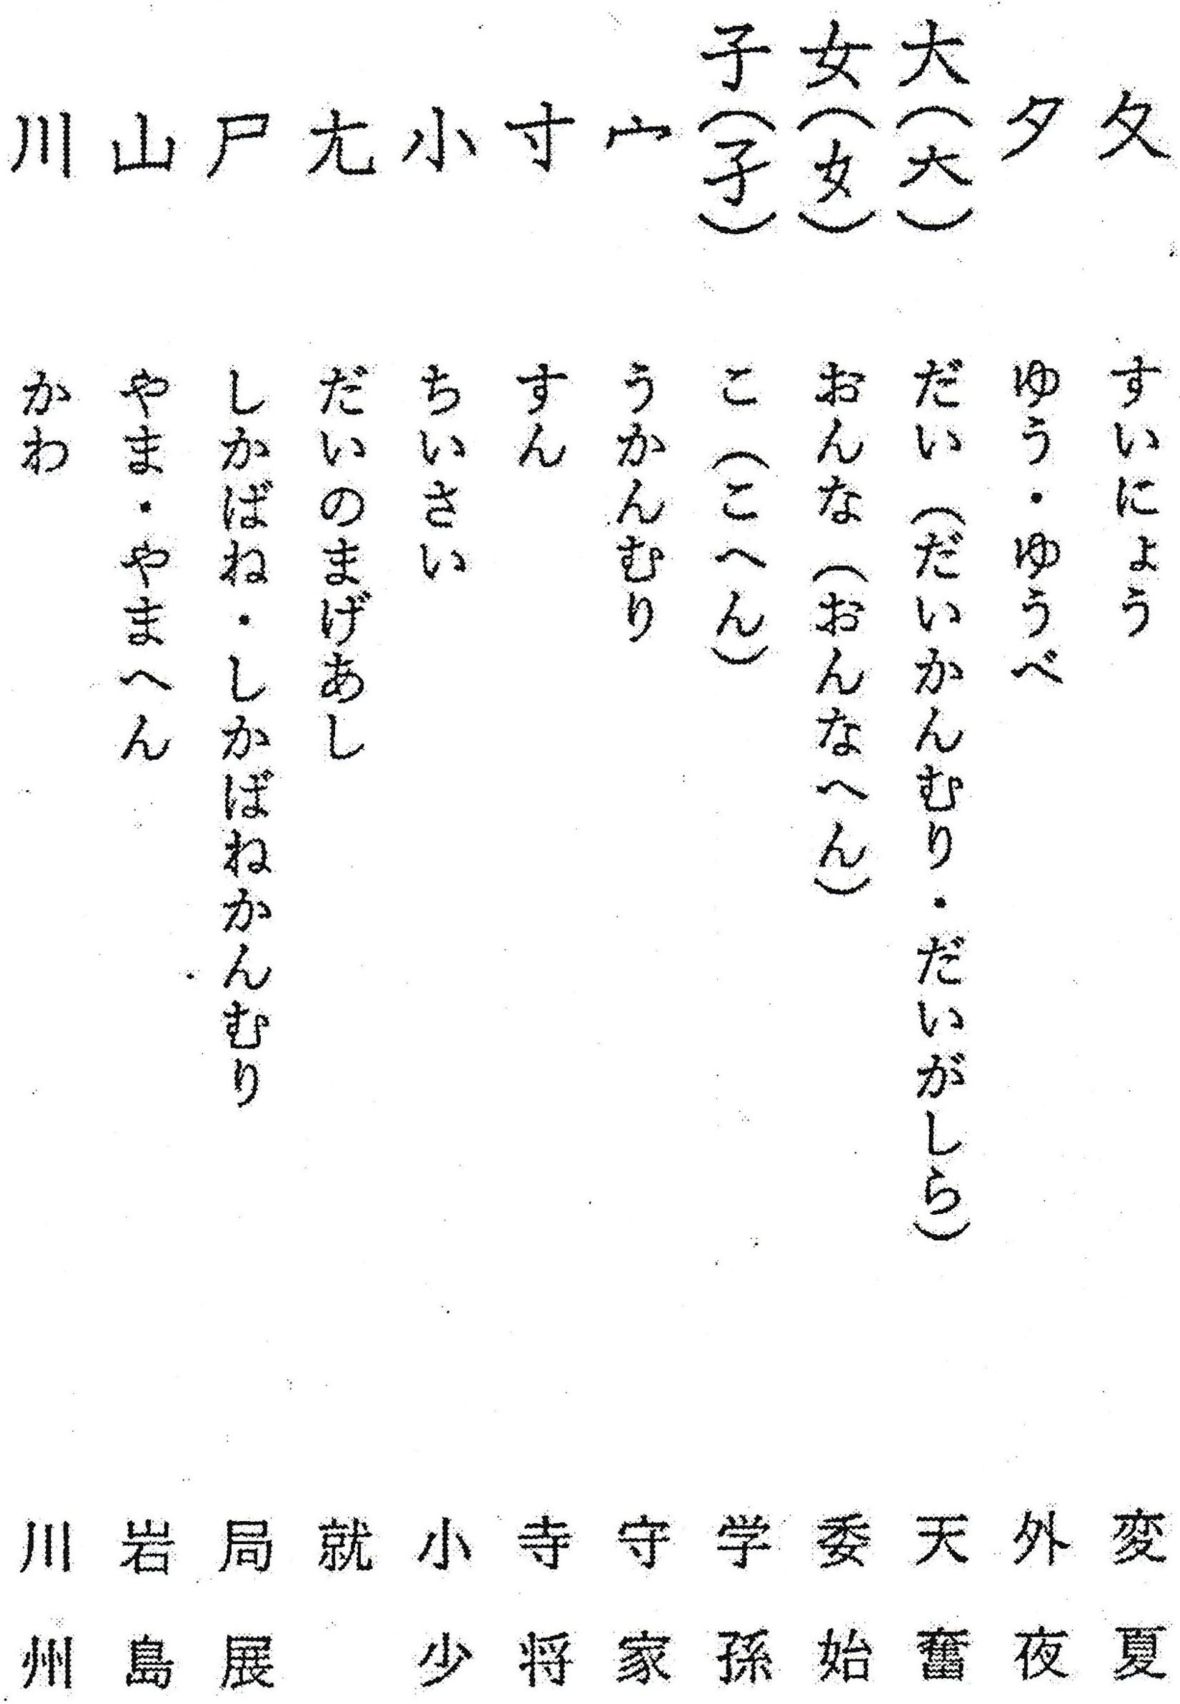 夂 すいにょう 変 夏
夕 ゆう・ゆうべ 外 夜
大(大) だい(だいかんむり・だいがしら) 天 奮
女(女) おんな(おんなへん) 委 始
子(子) こ(こへん) 学 孫
宀 うかんむり 守 家
寸 すん 寺 将
小 ちいさい 小 少
尢 だいのまげあし 就
尸 しかばね・しかばねかんむり 局 展
山 やま・やまへん 岩 島
川 かわ 川 州